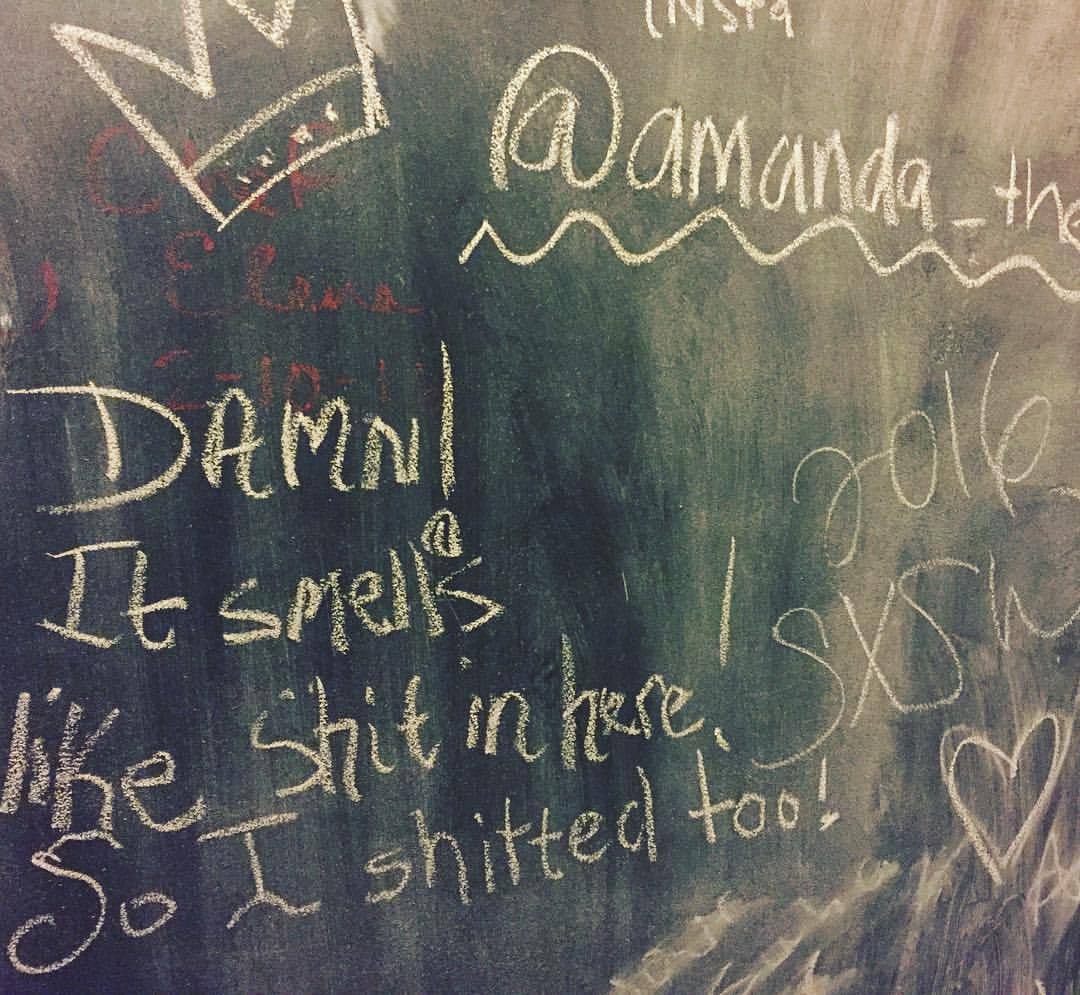 Insta
@amanda_the
Chef
Elana
DAMN!
It smells
like shit in here!
So I shitted too!
2016
SXSW